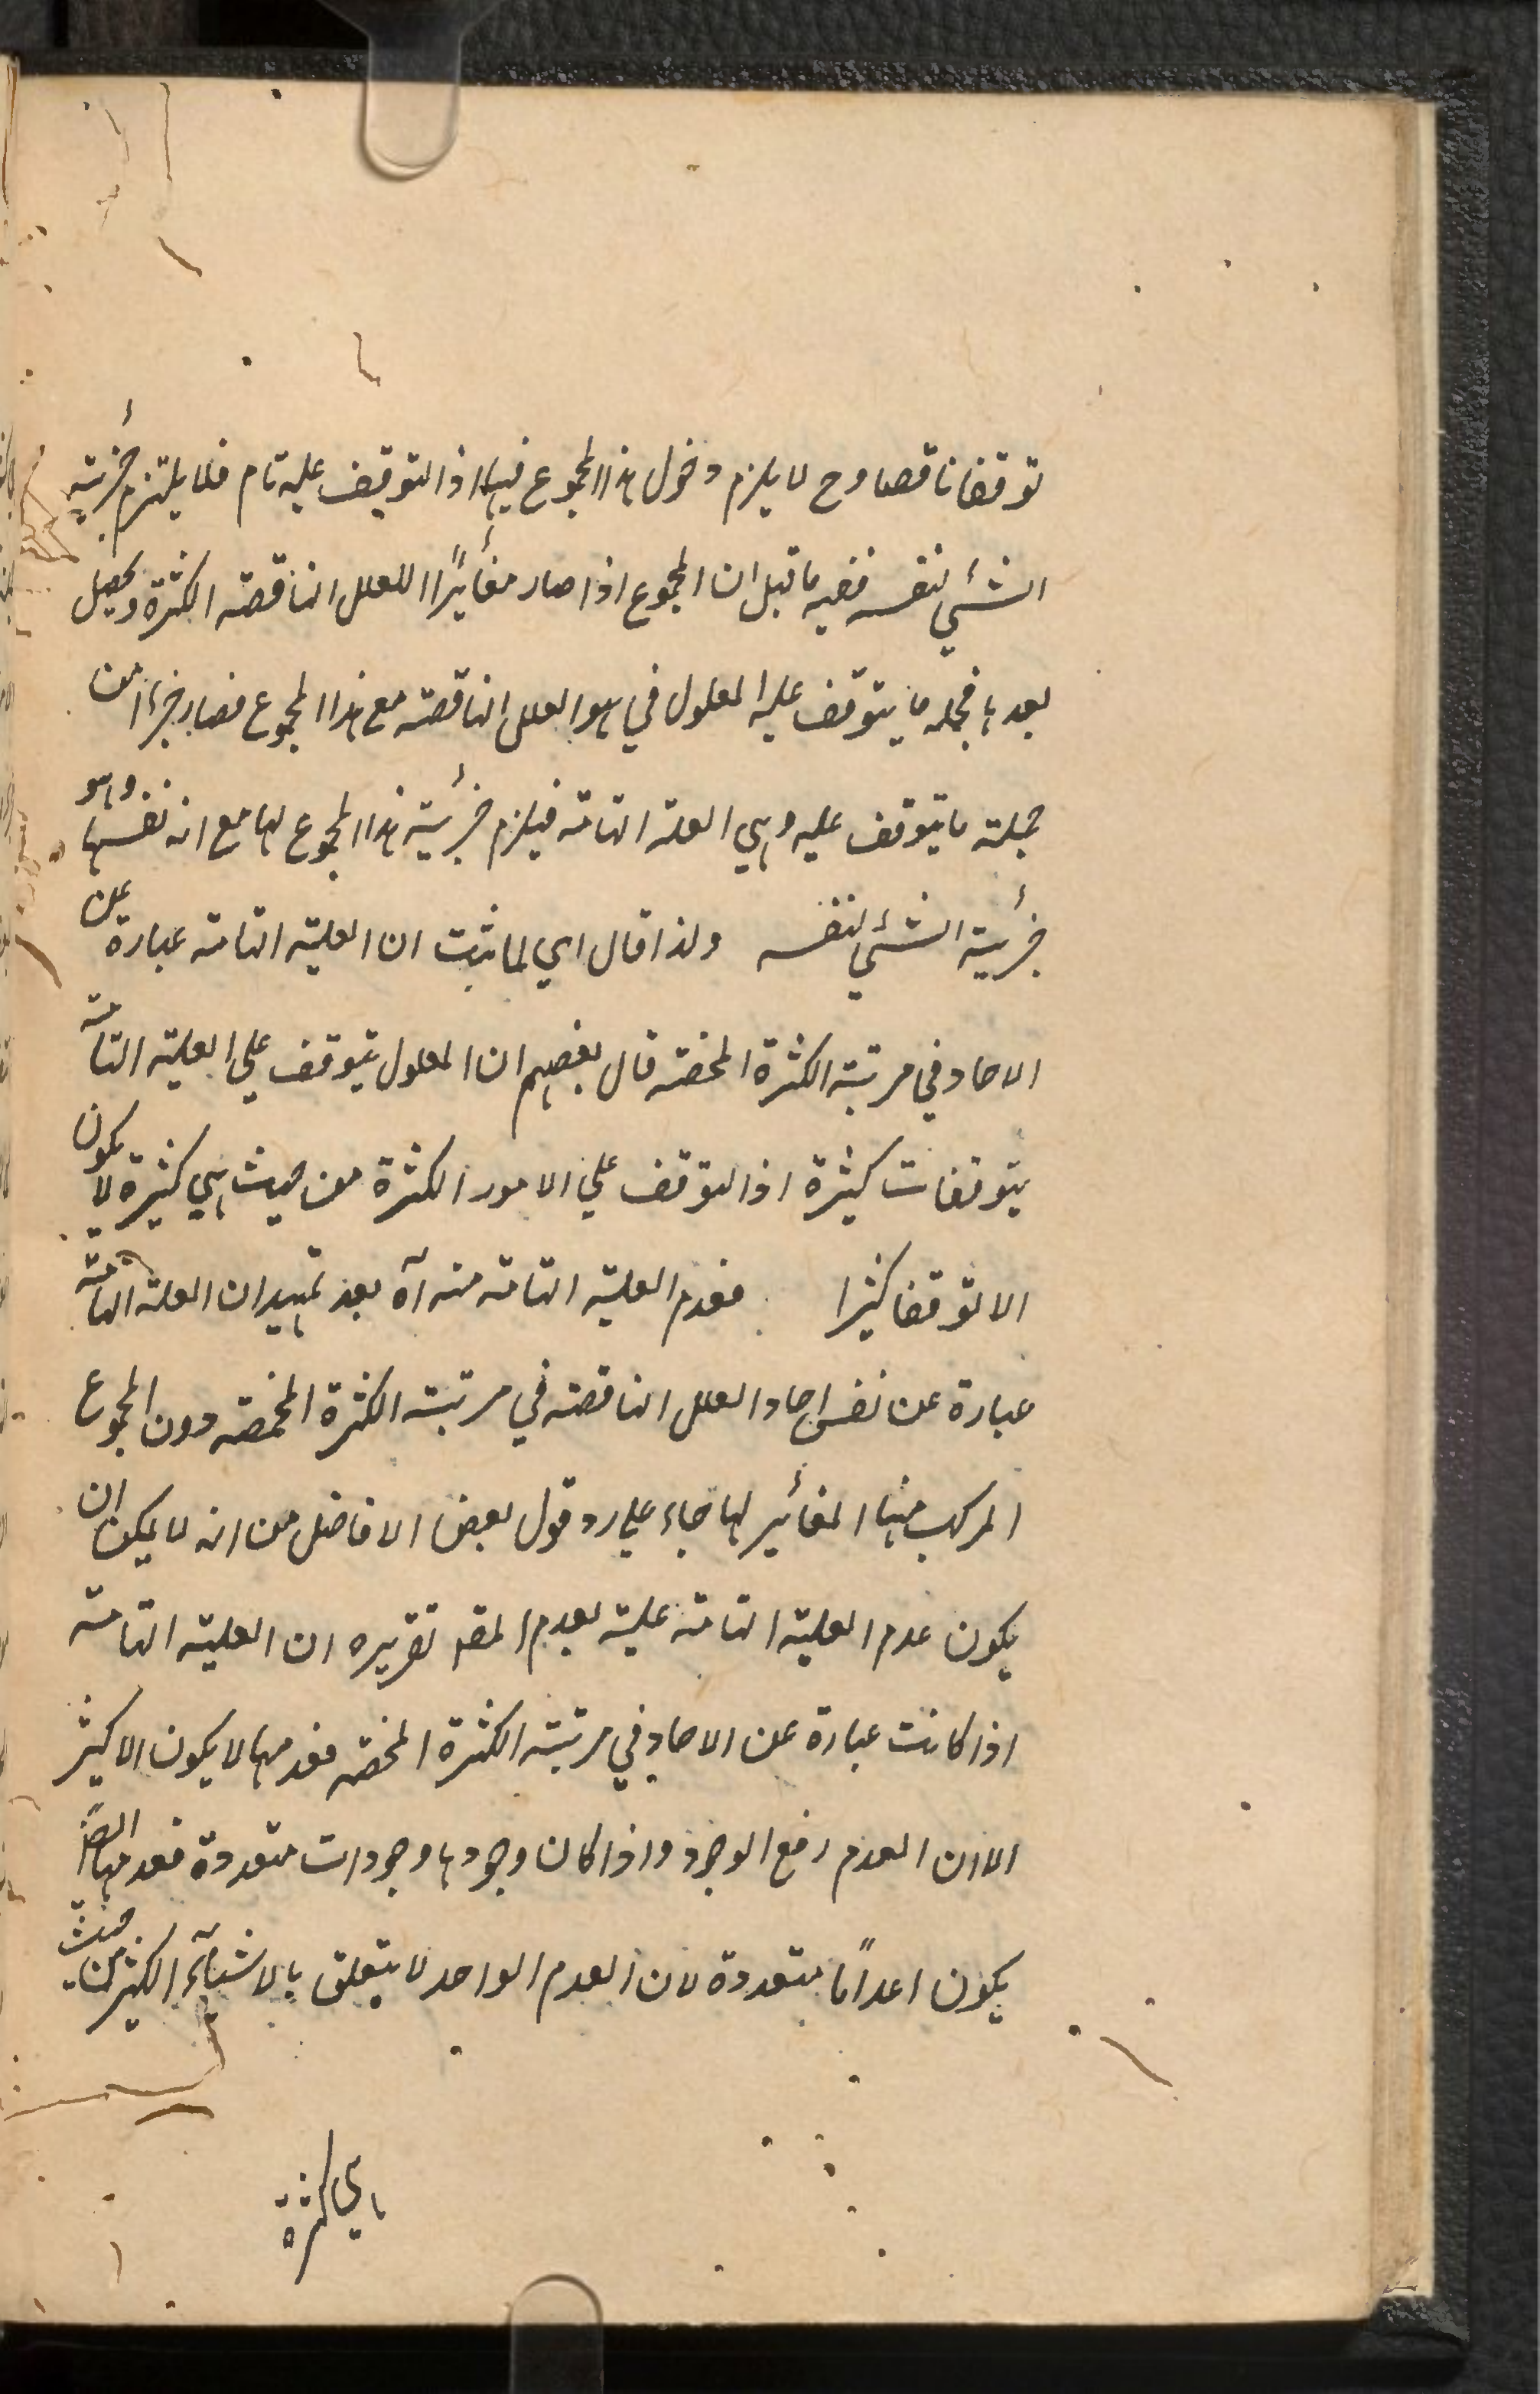 توقفا ناقصا وح لا يلزم دخول هذا المجموع فيها اذ التوقف عليه تام فلا يلتزم جزئية
الشئي لنفسه ففيه ما قيل ان المجموع اذا صار مغائرًا للعلل الناقصة الكثرة ويحصل
بعدها فجملة ما يتوقف عليه المعلول في هو العلل الناقصة مع هذا المجموع فصار جزءا من
جملة ما يتوقف عليه وهي العلة التامة فيلزم جزئية هذا المجموع لها مع انه نفسها وهو
جزئية الشئي لنفسه ولذا قال اي لما ثبت ان العلية التامة عبارة عن
الاحاد في مرتبة الكثرة المحضة قال بعضهم ان المعلول يتوقف علي العلية التامة
بتوقفات كثيرة اذ التوقف علي الامور الكثرة من حيث هي كثيرة لا يكون
الا توقفا كثيرا فعدم العلية التامة منه آه بعد تمهيد ان العلة التامة
عبارة عن نفس احاد العلل الناقصة في مرتبة الكثرة المحضة دون المجموع
المركب منها المغائير لها جاء علي رد قول بعض الافاضل من انه لا يمكن ان
يكون عدم العلية التامة علية لعدم المعلول تقريره ان العلية التامة
اذا كانت عبارة عن الاحاد في مرتبة الكثرة المحضة فعدمها لا يكون الا كثير
الا ان العدم رفع الوجود واذا كان وجودها وجودات متعددة فعدمها ايضًا
يكون اعدامًا متعددة لان العدم الواحد لا يتعلق بالاشيآء الكثيرة من حيث
هي كثرة